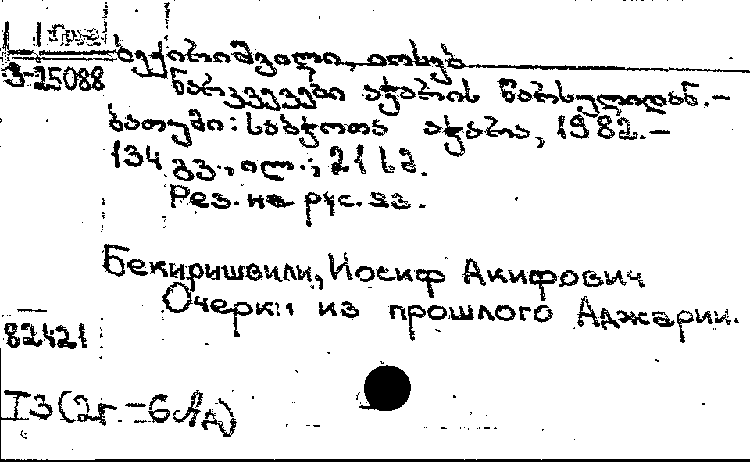 Груз
ბექირიშვილი, იოსებ
3-25088
ნარკვევები აჭარის წარსულიდან.–
ბათუმი: საბჭოთა აჭარა, 1982.–
134 გვ., ილ.; 21 სმ.
Рез. на рус. яз.
Бекиришвили, Иосиф Акифович
Очерки из прошлого Аджарии.
82421
Т3(2г.–6Ад)